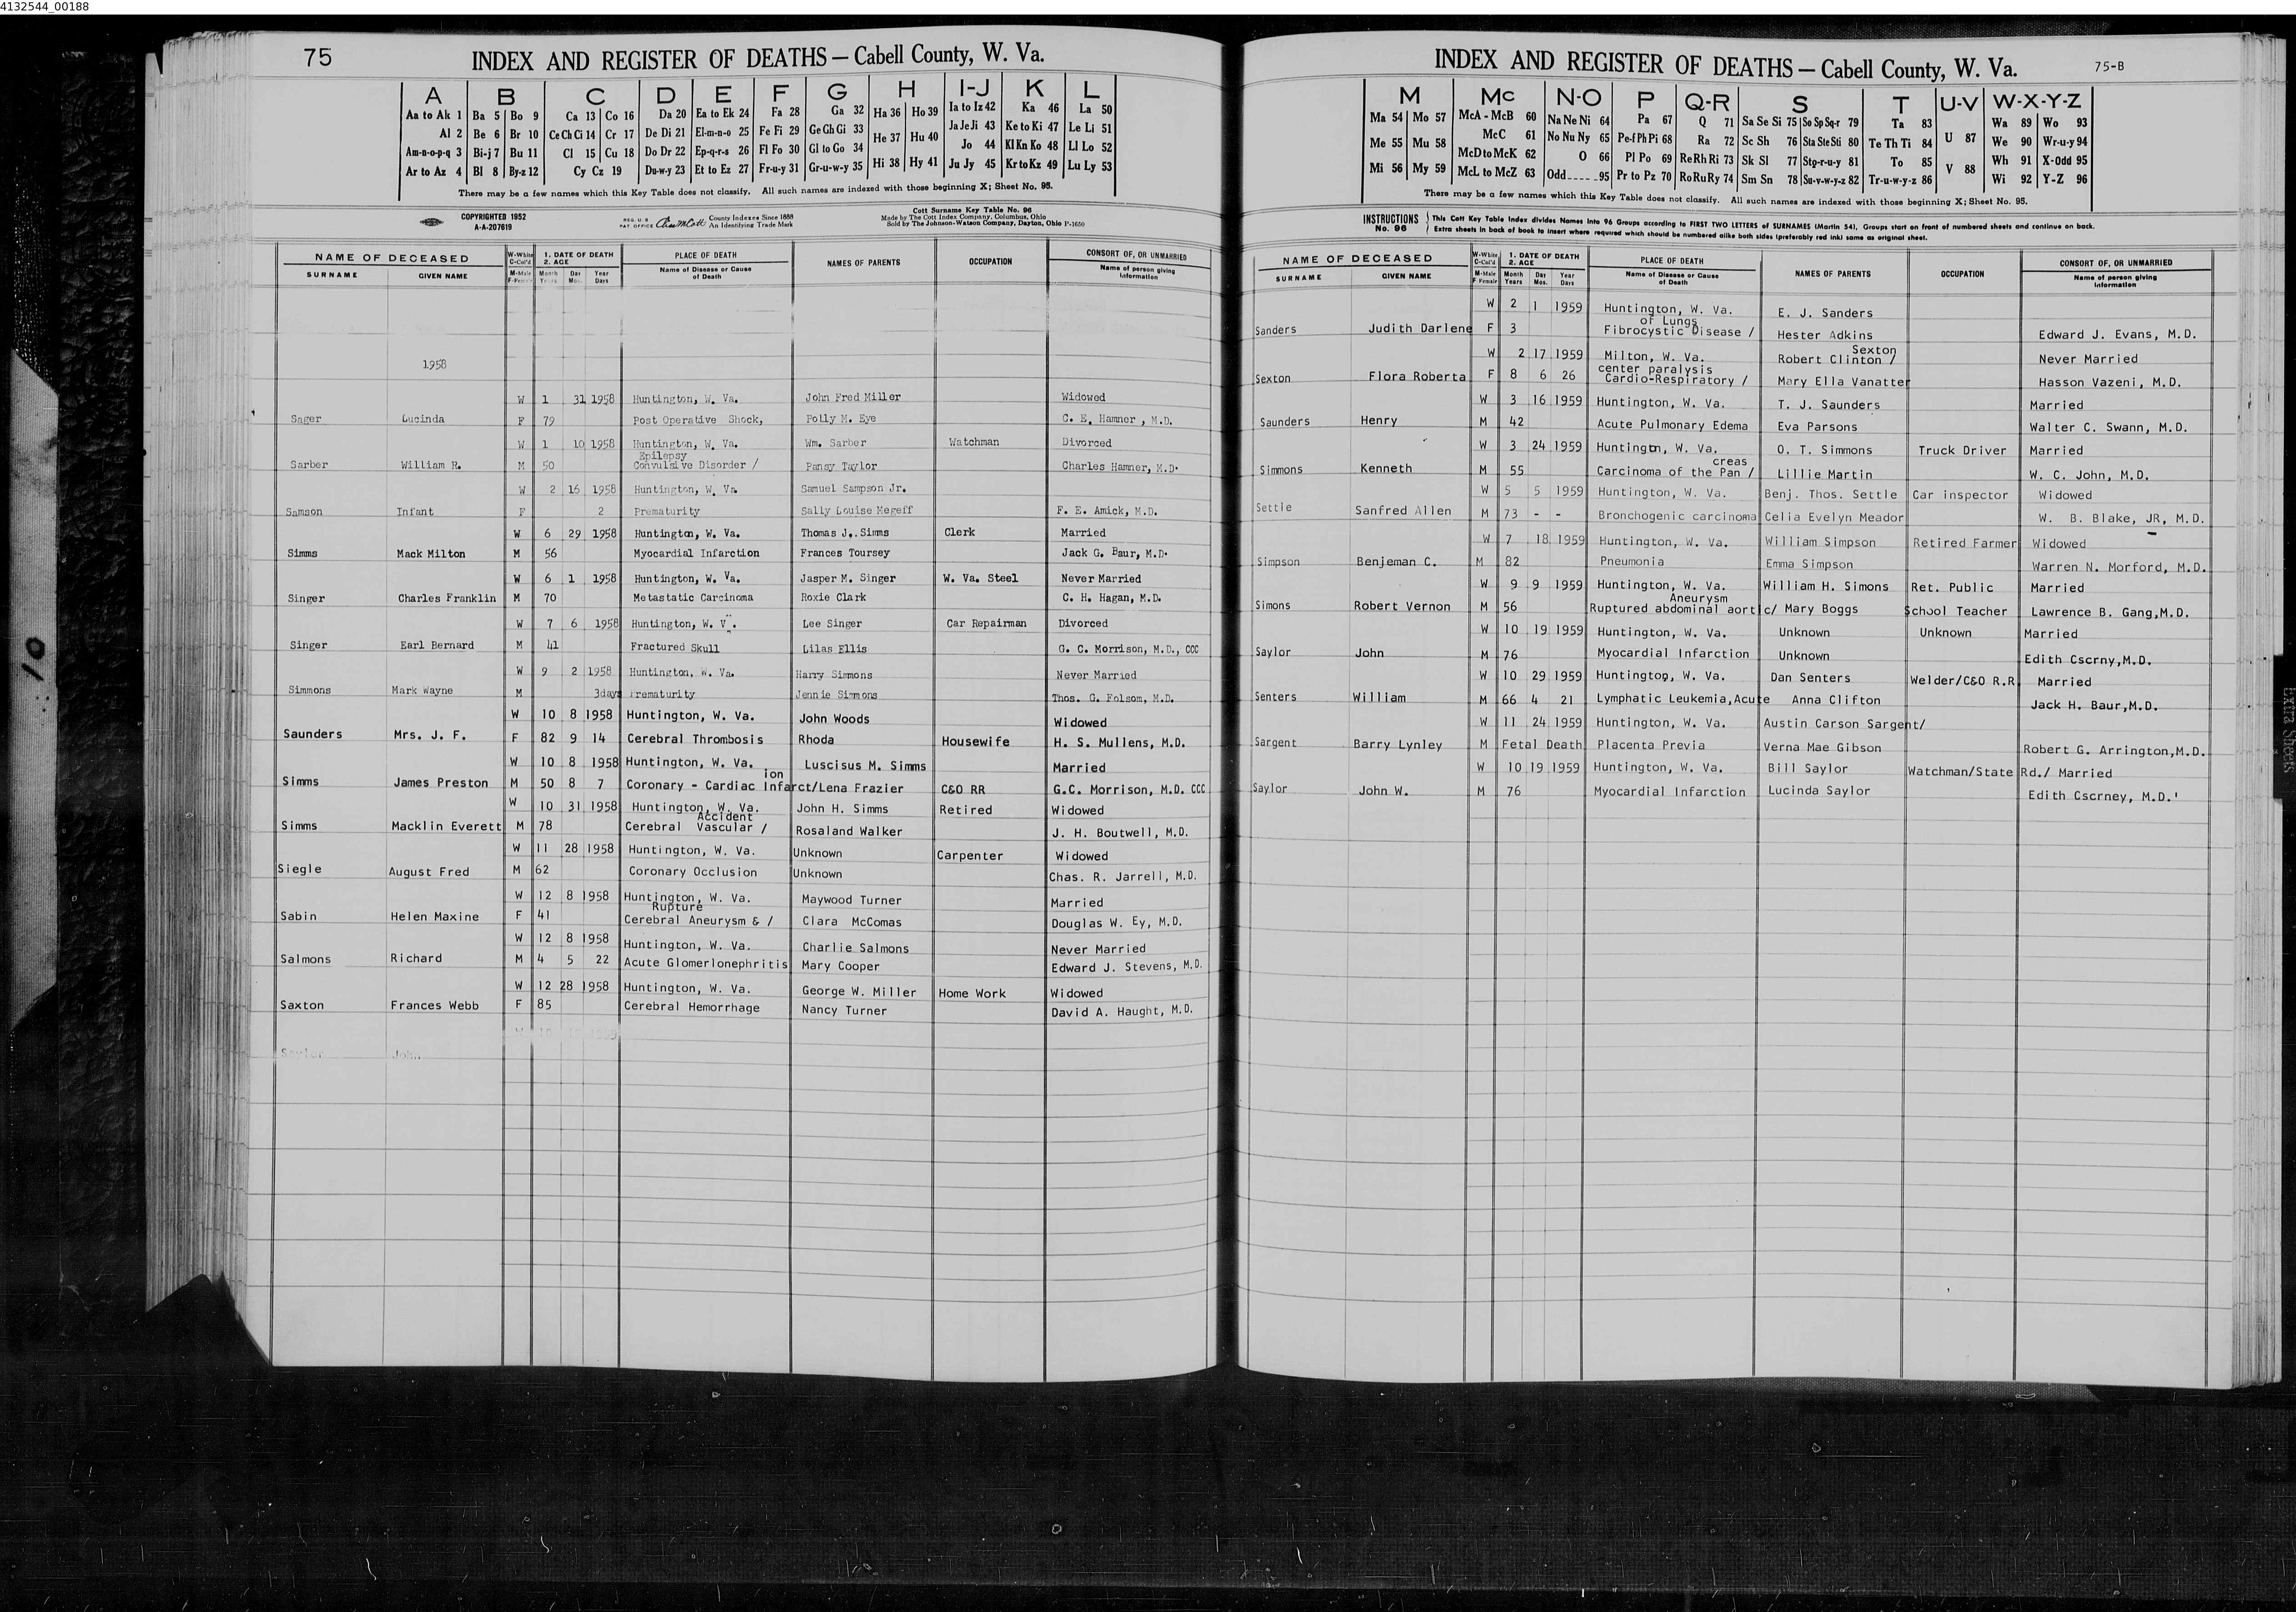 4132544_00188
75
INDEX AND REGISTER OF DEATHS — Cabell County, W. Va.
A B C D E F G H I-J K L
Aa to Ak 1 Ba 5 Bo 9 Ca 13 Co 16 Da 20 Ea to Ek 24 Fa 28 Ga 32 Ha 36 Ho 39 Ia to Iz 42 Ka 46 La 50
Al 2 Be 6 Br 10 Ce Ch Ci 14 Cr 17 De Di 21 El-m-n-o 25 Fe Fi 29 Ge Gh Gi 33 He 37 Hu 40 Ja Je Ji 43 Ke to Ki 47 Le Li 51
Am-n-o-p-q 3 Bi-j 7 Bu 11 Cl 15 Cu 18 Do Dr 22 Ep-q-r-s 26 Fl Fo 30 Gl to Go 34 Jo 44 Kl Kn Ko 48 Ll Lo 52
Ar to Az 4 Bl 8 By-z 12 Cy Cz 19 Du-w-y 23 Et to Ez 27 Fr-u-y 31 Gr-u-w-y 35 Hi 38 Hy 41 Ju Jy 45 Kr to Kz 49 Lu Ly 53
There may be a few names which this Key Table does not classify. All such names are indexed with those beginning X; Sheet No. 95.
COPYRIGHTED 1952
A-A-207619
REG. U. S. PAT. OFFICE County Indexes Since 1888
An Identifying Trade Mark
Cott Surname Key Table No. 96
Made by The Cott Index Company, Columbus, Ohio
Sold by The Johnson-Watson Company, Dayton, Ohio P-1650
NAME OF DECEASED W-White C-Col'd 1. DATE OF DEATH 2. AGE PLACE OF DEATH NAMES OF PARENTS OCCUPATION CONSORT OF, OR UNMARRIED
SURNAME GIVEN NAME M-Male F-Female Month Day Year Years Mos. Days Name of Disease or Cause of Death Name of person giving information
1958
W 1 31 1958 Huntington, W. Va. John Fred Miller Widowed
Sager Lucinda F 79 Post Operative Shock, Polly M. Eye C. E. Hamner , M.D.
W 1 10 1958 Huntington, W. Va. Wm. Sarber Watchman Divorced
Epilepsy
Sarber William R. M 50 Convulsive Disorder / Pansy Taylor Charles Hamner, M.D.
W 2 16 1958 Huntington, W. Va. Samuel Sampson Jr.
Samson Infant F 2 Prematurity Sally Louise Megeff F. E. Amick, M.D.
W 6 29 1958 Huntington, W. Va. Thomas J. Simms Clerk Married
Simms Mack Milton M 56 Myocardial Infarction Frances Toursey Jack G. Baur, M.D.
W 6 1 1958 Huntington, W. Va. Jasper M. Singer W. Va. Steel Never Married
Singer Charles Franklin M 70 Metastatic Carcinoma Roxie Clark C. H. Hagan, M.D.
W 7 6 1958 Huntington, W. V . Lee Singer Car Repairman Divorced
Singer Earl Bernard M 41 Fractured Skull Lilas Ellis G. C. Morrison, M.D., CCC
W 9 2 1958 Huntington, W. Va. Harry Simmons Never Married
Simmons Mark Wayne M 3days Prematurity Jennie Simmons Thos. G. Folsom, M.D.
W 10 8 1958 Huntington, W. Va. John Woods Widowed
Saunders Mrs. J. F. F 82 9 14 Cerebral Thrombosis Rhoda Housewife H. S. Mullens, M.D.
W 10 8 1958 Huntington, W. Va. Luscisus M. Simms Married
ion
Simms James Preston M 50 8 7 Coronary - Cardiac Infarct/Lena Frazier C&O RR G.C. Morrison, M.D. CCC
W 10 31 1958 Huntington, W. Va. John H. Simms Retired Widowed
Accident
Simms Macklin Everett M 78 Cerebral Vascular / Rosaland Walker J. H. Boutwell, M.D.
W 11 28 1958 Huntington, W. Va. Unknown Carpenter Widowed
Siegle August Fred M 62 Coronary Occlusion Unknown Chas. R. Jarrell, M.D.
W 12 8 1958 Huntington, W. Va. Maywood Turner Married
Rupture
Sabin Helen Maxine F 41 Cerebral Aneurysm & / Clara McComas Douglas W. Ey, M.D.
W 12 8 1958 Huntington, W. Va. Charlie Salmons Never Married
Salmons Richard M 4 5 22 Acute Glomerlonephritis Mary Cooper Edward J. Stevens, M.D.
W 12 28 1958 Huntington, W. Va. George W. Miller Home Work Widowed
Saxton Frances Webb F 85 Cerebral Hemorrhage Nancy Turner David A. Haught, M.D.
Saylor John
INDEX AND REGISTER OF DEATHS — Cabell County, W. Va.
75-B
M Mc N-O P Q-R S T U-V W-X-Y-Z
Ma 54 Mo 57 McA - McB 60 Na Ne Ni 64 Pa 67 Q 71 Sa Se Si 75 So Sp Sq-r 79 Ta 83 Wa 89 Wo 93
Me 55 Mu 58 McC 61 No Nu Ny 65 Pe-f Ph Pi 68 Ra 72 Sc Sh 76 Sta Ste Sti 80 Te Th Ti 84 U 87 We 90 Wr-u-y 94
McD to McK 62 O 66 Pl Po 69 Re Rh Ri 73 Sk Sl 77 Sto-r-u-y 81 To 85 Wh 91 X-Odd 95
Mi 56 My 59 McL to McZ 63 Odd 95 Pr to Pz 70 Ro Ru Ry 74 Sm Sn 78 Su-v-w-y-z 82 Tr-u-w-y-z 86 V 88 Wi 92 Y-Z 96
There may be a few names which this Key Table does not classify. All such names are indexed with those beginning X; Sheet No. 95.
INSTRUCTIONS No. 96
This Cott Key Table Index divides Names into 96 Groups according to FIRST TWO LETTERS of SURNAMES (Martin 54). Groups start on front of numbered sheets and continue on back.
Extra sheets in back of book to insert where required which should be numbered alike both sides (preferably red ink) same as original sheet.
NAME OF DECEASED W-White C-Col'd 1. DATE OF DEATH 2. AGE PLACE OF DEATH NAMES OF PARENTS OCCUPATION CONSORT OF, OR UNMARRIED
SURNAME GIVEN NAME M-Male F-Female Month Day Year Years Mos. Days Name of Disease or Cause of Death Name of person giving information
W 2 1 1959 Huntington, W. Va. E. J. Sanders
of Lungs
Sanders Judith Darlene F 3 Fibrocystic Disease / Hester Adkins Edward J. Evans, M.D.
Sexton
W 2 17 1959 Milton, W. Va. Robert Clinton / Never Married
center paralysis
Sexton Flora Roberta F 8 6 26 Cardio-Respiratory / Mary Ella Vanatter Hasson Vazeni, M.D.
W 3 16 1959 Huntington, W. Va. T. J. Saunders Married
Saunders Henry M 42 Acute Pulmonary Edema Eva Parsons Walter C. Swann, M.D.
W 3 24 1959 Huntington, W. Va. O. T. Simmons Truck Driver Married
creas
Simmons Kenneth M 55 Carcinoma of the Pan / Lillie Martin W. C. John, M.D.
W 5 5 1959 Huntington, W. Va. Benj. Thos. Settle Car inspector Widowed
Settle Sanfred Allen M 73 - - Bronchogenic carcinoma Celia Evelyn Meador W. B. Blake, JR, M.D.
W 7 18 1959 Huntington, W. Va. William Simpson Retired Farmer Widowed
Simpson Benjeman C. M 82 Pneumonia Emma Simpson Warren N. Morford, M.D.
W 9 9 1959 Huntington, W. Va. William H. Simons Ret. Public Married
Aneurysm
Simons Robert Vernon M 56 Ruptured abdominal aortic/ Mary Boggs School Teacher Lawrence B. Gang,M.D.
W 10 19 1959 Huntington, W. Va. Unknown Unknown Married
Saylor John M 76 Myocardial Infarction Unknown Edith Cscrny,M.D.
W 10 29 1959 Huntington, W. Va. Dan Senters Welder/C&O R.R Married
Senters William M 66 4 21 Lymphatic Leukemia,Acute Anna Clifton Jack H. Baur,M.D.
W 11 24 1959 Huntington, W. Va. Austin Carson Sargent/
Sargent Barry Lynley M Fetal Death Placenta Previa Verna Mae Gibson Robert G. Arrington,M.D.
W 10 19 1959 Huntington, W. Va. Bill Saylor Watchman/State Rd./ Married
Saylor John W. M 76 Myocardial Infarction Lucinda Saylor Edith Cscrney, M.D.'
Extra Sheets